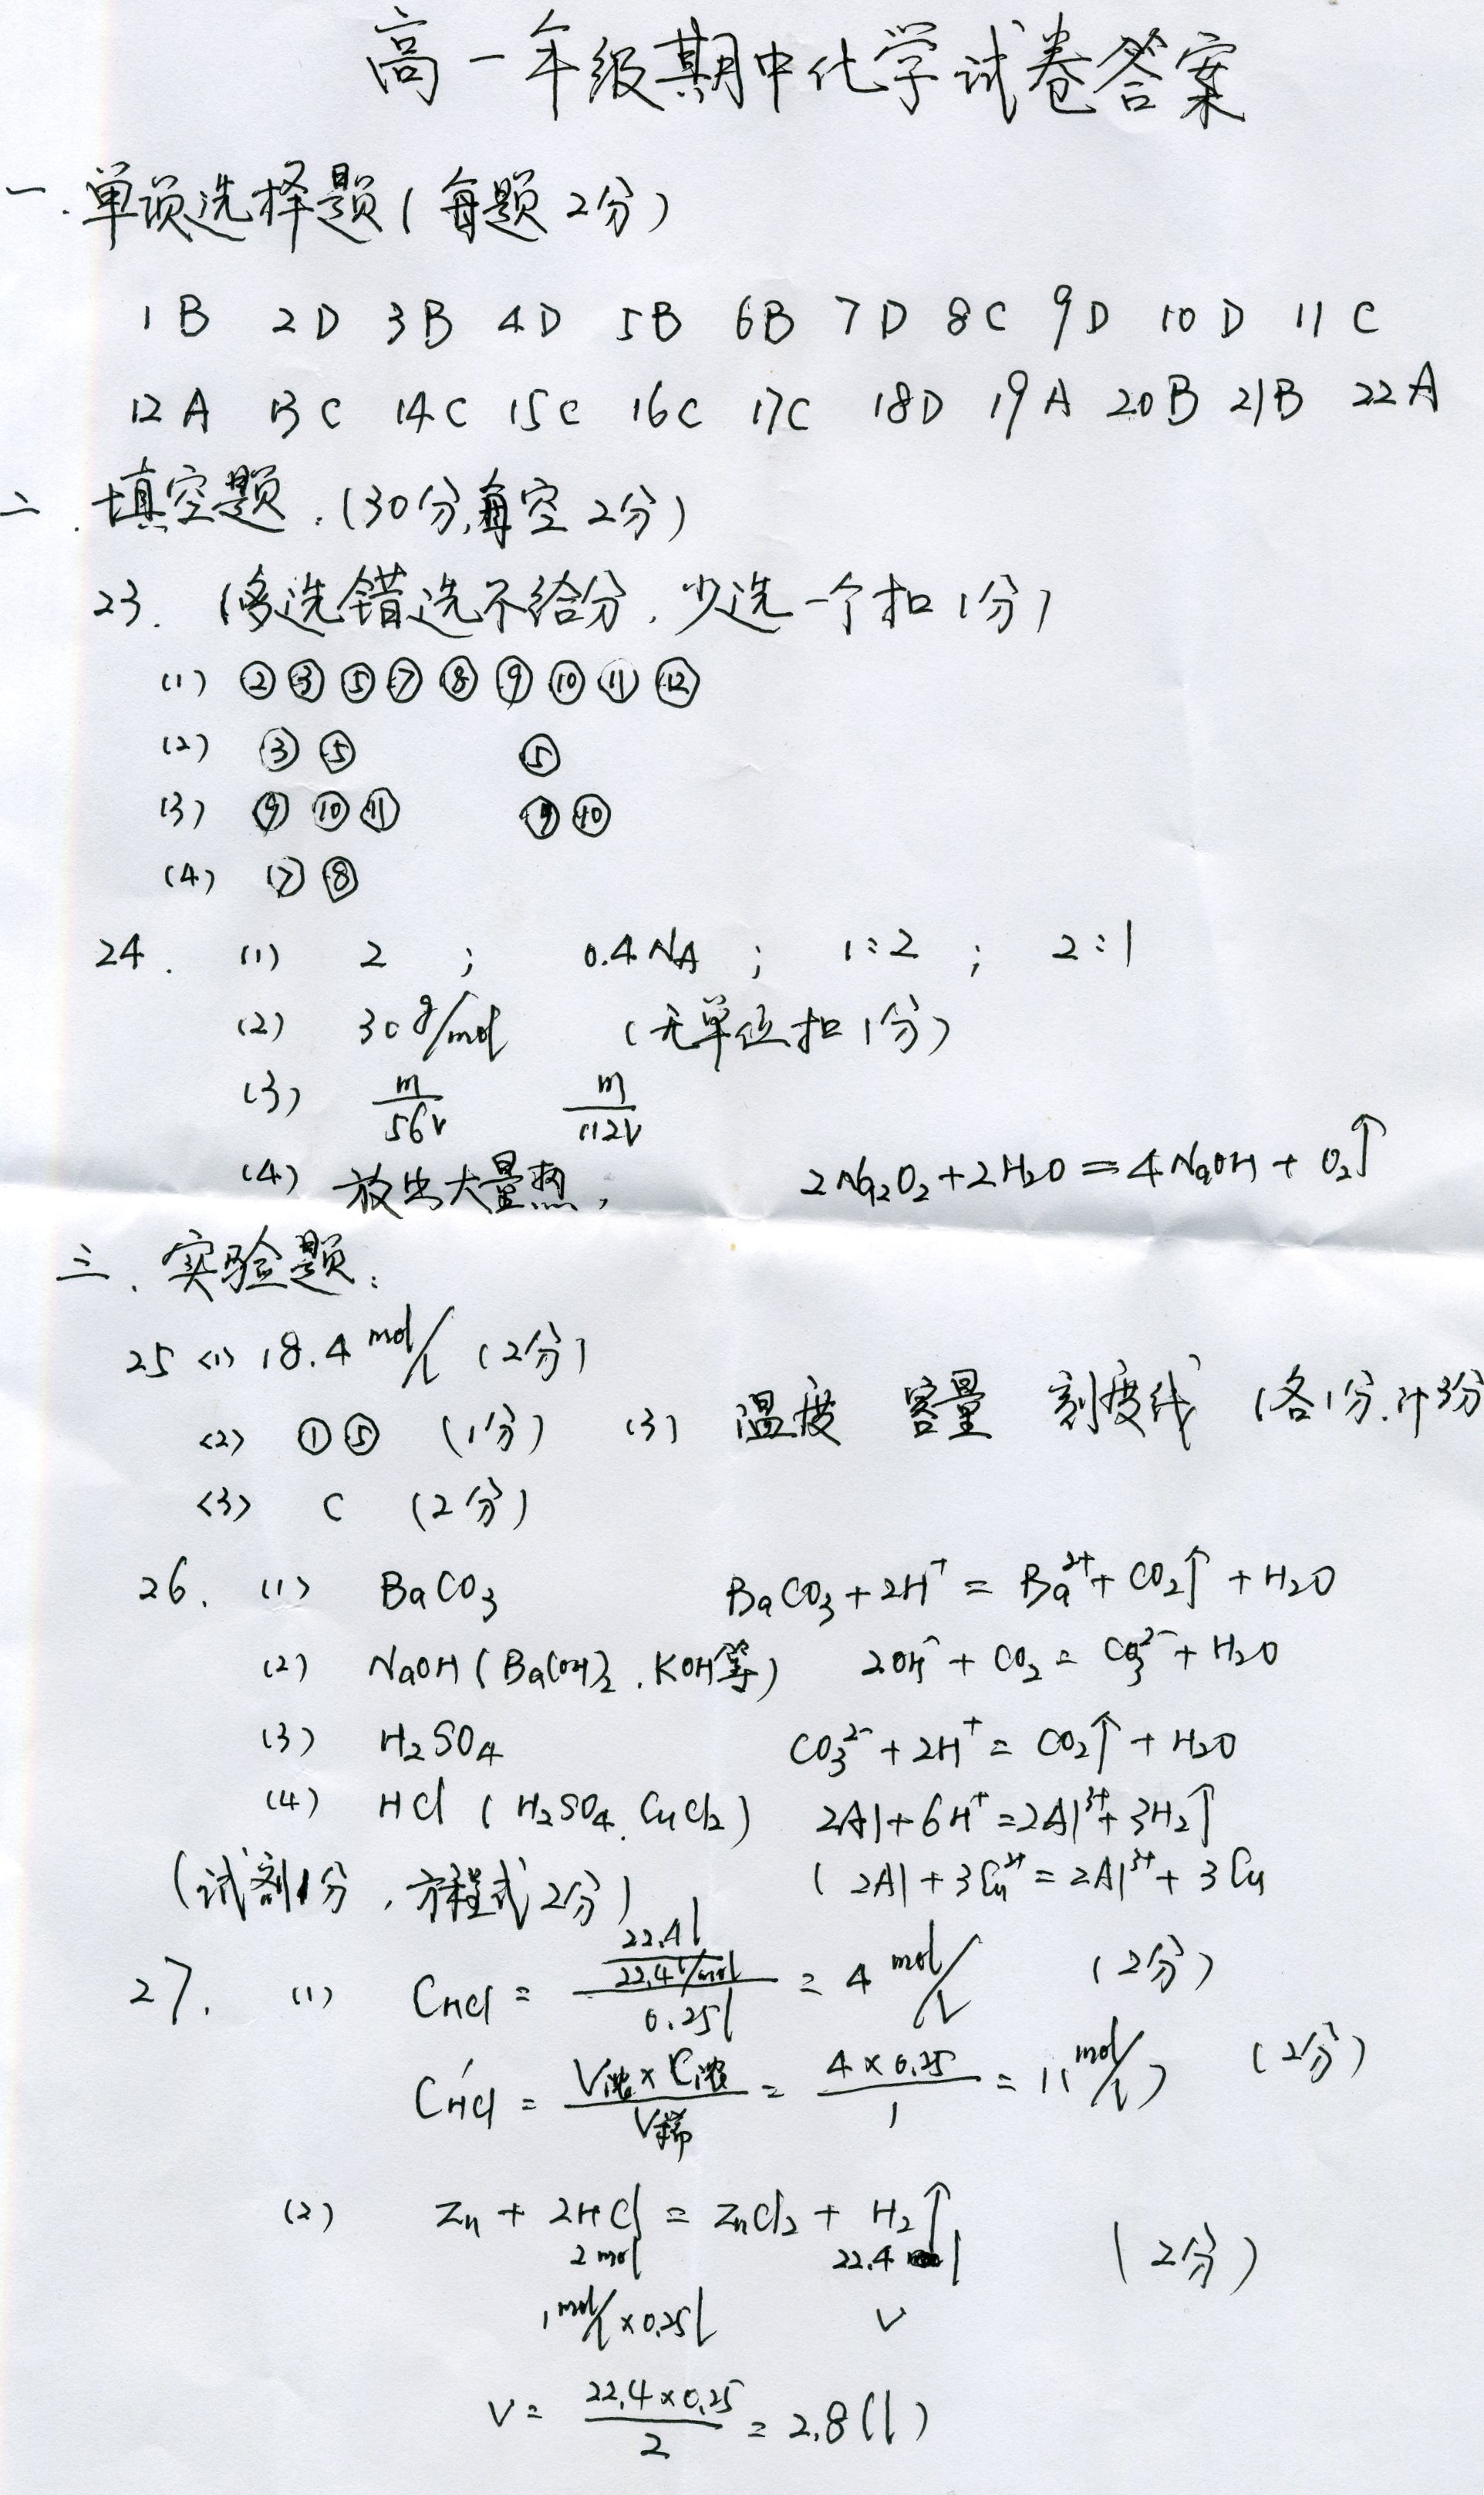 高一年级期中化学试卷答案
一.单项选择题(每题2分)
1B 2D 3B 4D 5B 6B 7D 8C 9D 10D 11C
12A 13C 14C 15C 16C 17C 18D 19A 20B 21B 22A
二.填空题.(30分,每空2分)
23. (多选错选不给分,少选一个扣1分)
(1) ②③⑤⑦⑧⑨⑩⑪⑫
(2) ③⑤ ⑤
(3) ⑨⑩⑪ ⑨⑩
(4) ⑦⑧
24. (1) 2 ; 0.4NA ; 1:2 ; 2:1
(2) 30g/mol (无单位扣1分)
(3) m/56V m/112V
(4) 放出大量热, 2Na₂O₂+2H₂O=4NaOH+O₂↑
三、实验题:
25 <1> 18.4 mol/L (2分)
<2> ①⑤ (1分) (3) 温度 容量 刻度线 (各1分.计3分
<3> C (2分)
26. (1) BaCO₃ BaCO₃+2H⁺=Ba²⁺+CO₂↑+H₂O
(2) NaOH(Ba(OH)₂.KOH等) 2OH⁻+CO₂=CO₃²⁻+H₂O
(3) H₂SO₄ CO₃²⁻+2H⁺=CO₂↑+H₂O
(4) HCl (H₂SO₄.CuCl₂) 2Al+6H⁺=2Al³⁺+3H₂↑
(试剂1分,方程式2分) (2Al+3Cu²⁺=2Al³⁺+3Cu
27. (1) CHCl = (22.4l/22.4l/mol)/0.25l = 4 mol/L (2分)
C'HCl = V浓×C浓/V稀 = 4×0.25/1 = 1(mol/L) (2分)
(2) Zn + 2HCl = ZnCl₂ + H₂↑
2mol 22.4 l (2分)
1mol/l×0.25l V
V= 22.4×0.25/2 = 2.8(l)